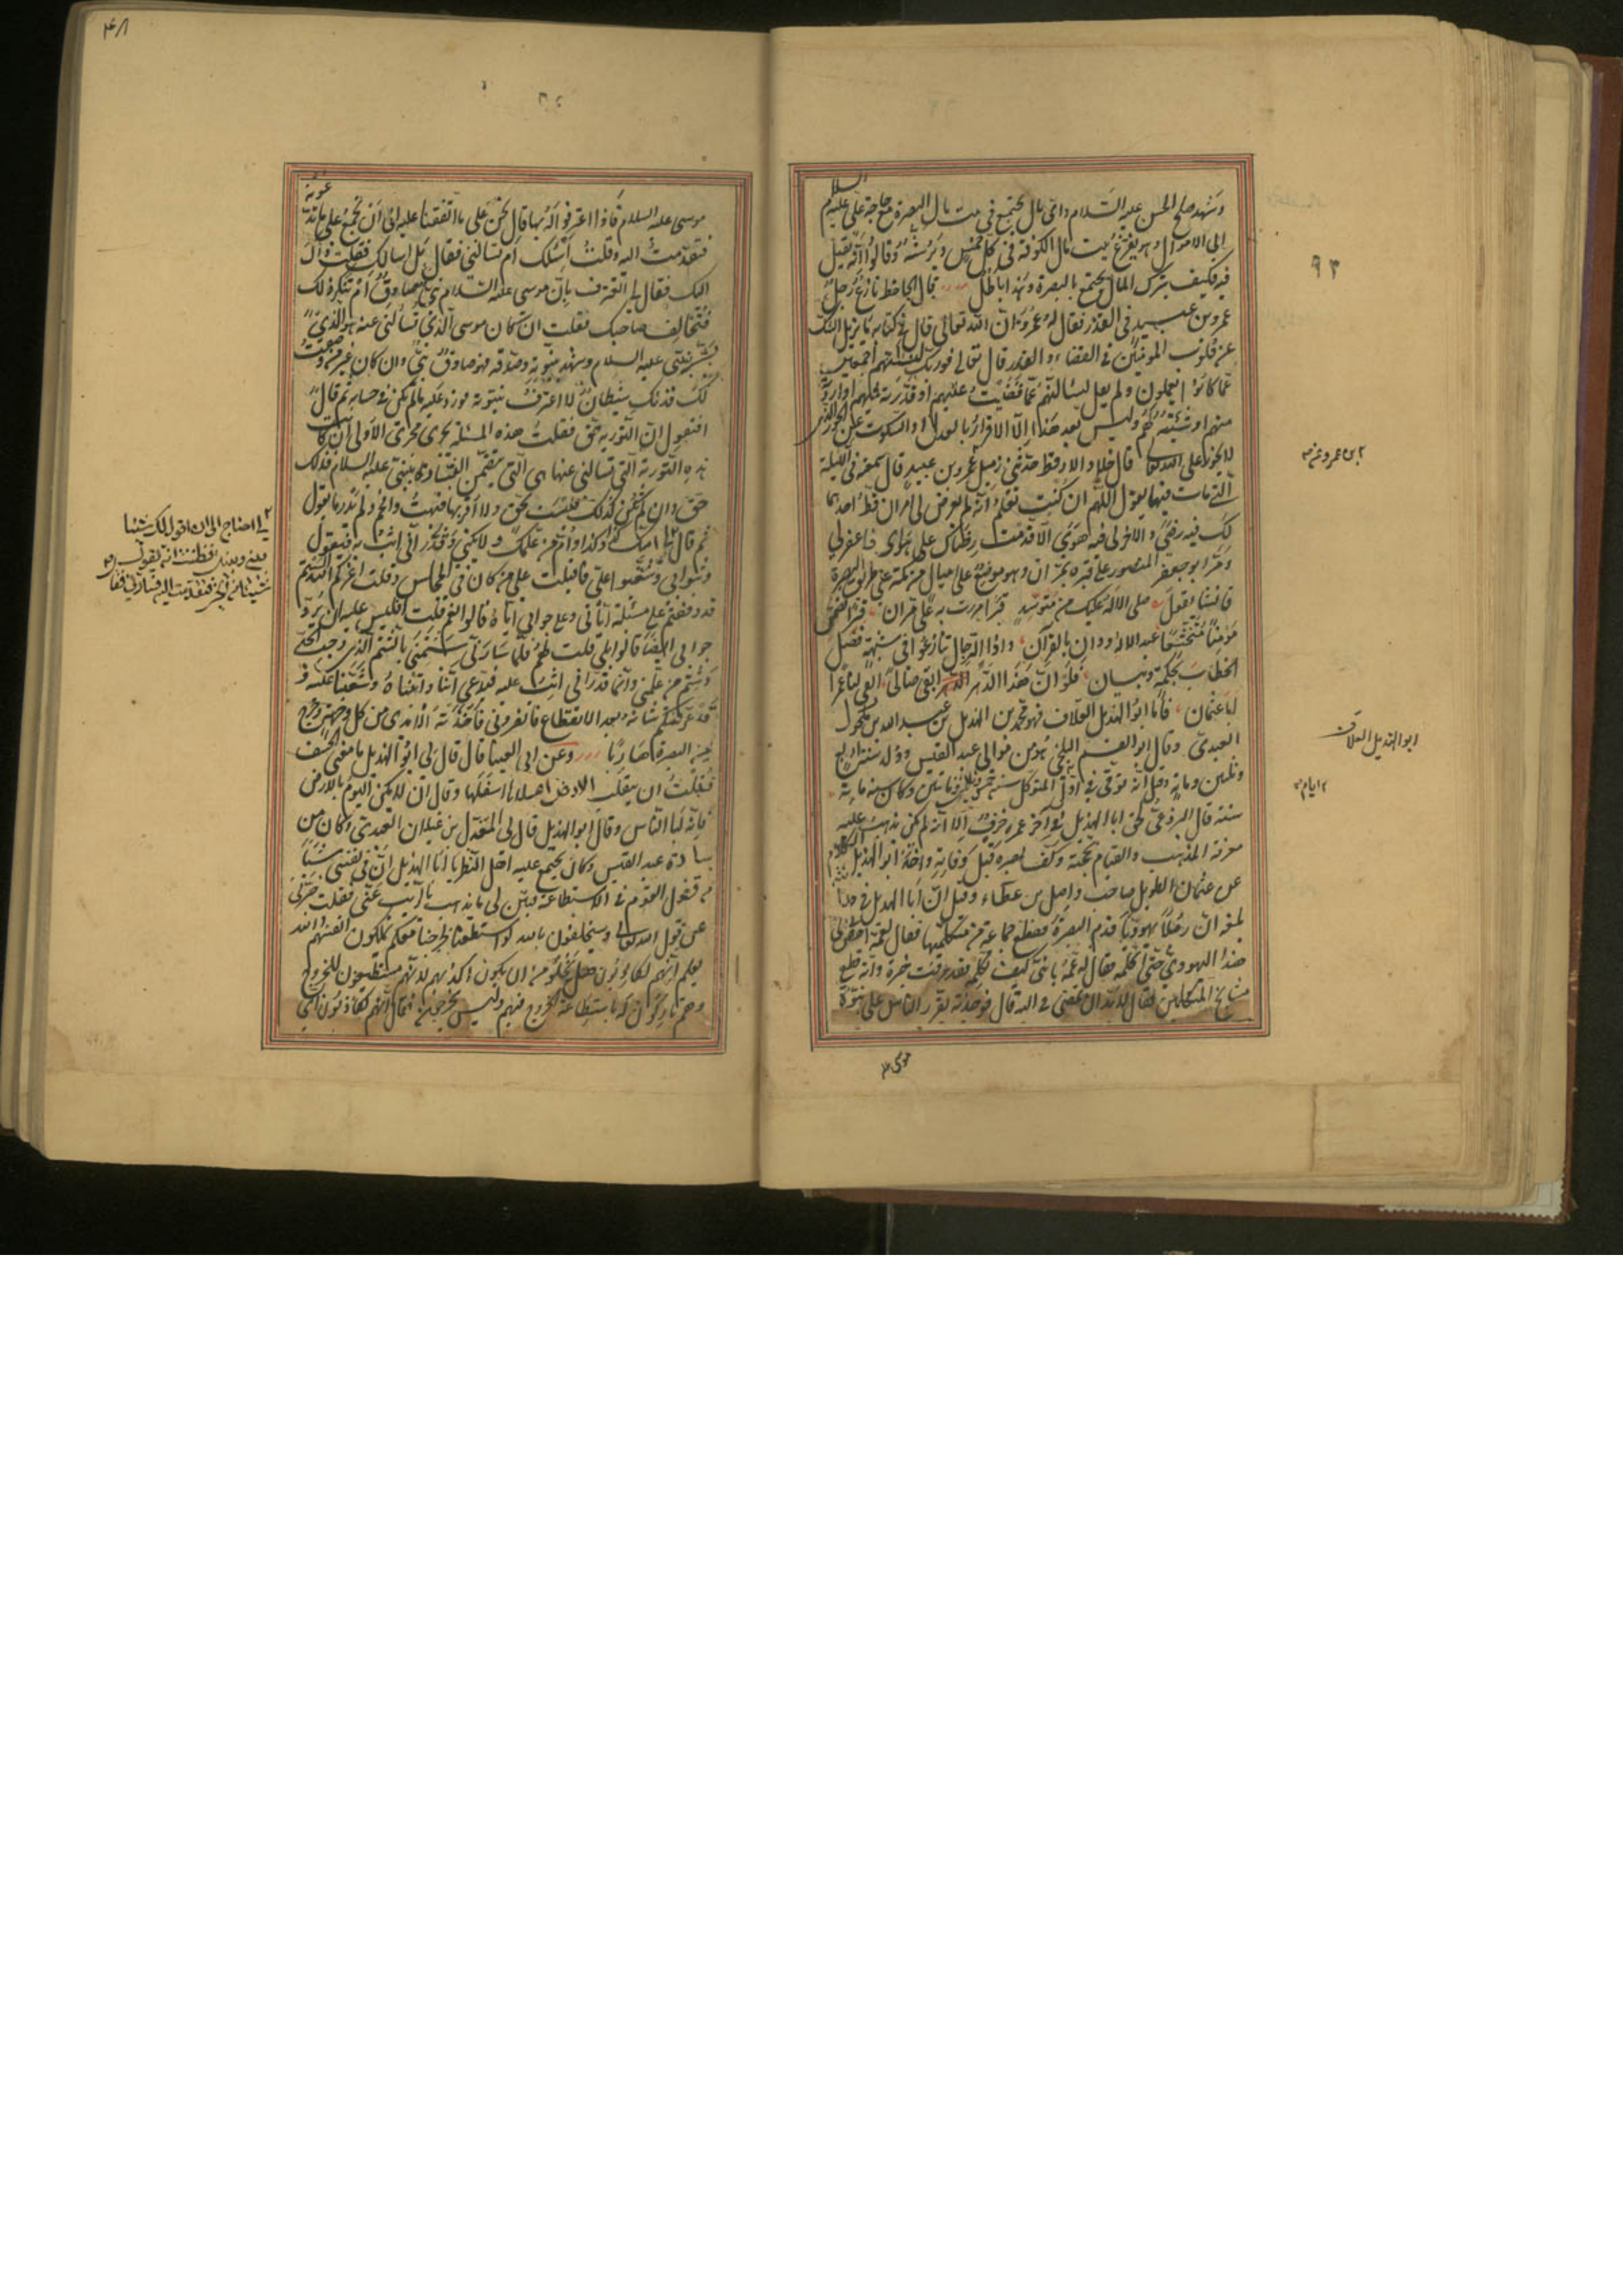 وشهد صلح الحسن عليه السلام وانى بال يجتمع فى بيت مال البصرة مع حاجة على عليه السلام
الى الاموال وهو يفرغ بيت مال الكوفة فى كل خميس ويرشه وقالوا انه يقيل
فيه فكيف يترك المال يجتمع بالبصرة وهذا باطل قال الجاحظ نازع رجل
عمرو بن عبيد فى القدر فقال له عمرو ان الله تعالى قال فى كتابه ما يزيل الشك
عن قلوب المؤمنين فى القضاء والقدر قال تعالى فوربك لنسئلنهم اجمعين
عما كانوا يعملون ولم يقل لنسالنهم عما قضيت عليهم او قدرته عليهم او اردته
منهم او شئته لهم وليس بعد هذا الا الاقرار بالعدل او السكوت عن الجور الذى
لا يجوز على الله تعالى قال خلاد الارقط حدثنى زميل عمرو بن عبيد قال سمعته فى الليلة
التى مات فيها يقول اللهم ان كنت تعلم انه لم يعرض لى امران قط احدهما
لك فيه رضى والاخر لى فيه هوى الا قدمت رضاك على هواى فاغفر لى
ومر ابو جعفر المنصور على قبره بمران وهو موضع على اميال من مكة على طريق البصرة
فانشا يقول صلى الاله عليك من متوسد قبرا مررت به على مران قبرا تضمن
مؤمنا متخشعا عبد الاله ودان بالقرآن واذا الرجال تنازعوا فى شبهة فصل
الخطاب بحكمة وبيان فلو ان هذا الدهر ابقى صالحا ابقى لنا عمرا
ابا عثمان فاما ابو الهذيل العلاف فهو محمد بن الهذيل بن عبيد الله بن مكحول
العبدى وقال ابو القسم البلخى هو من موالى عبد القيس وولد سنة اربع
وثلثين ومائة وقيل انه توفى فى اول ايام المتوكل سنة خمس وثلثين ومائتين وكان سنه مائة
سنة قال البرذعى لحق ابا الهذيل فى آخر عمره خرف الا انه لم يكن يذهب عليه
معرفة المذهب والقيام بحجته وكف بصره قبل وفاته واخذ ابو الهذيل الكلام
عن عثمان الطويل صاحب واصل بن عطاء وقيل ان ابا الهذيل فى حداثته
بلغه ان رجلا يهوديا قدم البصرة فقطع جماعة من متكلميها فقال لعمه امض بى الى
هذا اليهودى حتى اكلمه فقال له عمه يا بنى كيف تكلمه وقد عرفت خبره وانه قطع
مشايخ المتكلمين فقال لا بد ان تمضى بى اليه قال فوجدته يقرر الناس على نبوة
موسى
٩٣
بن عمرو عم
ابو الهذيل العلاف
ايام
٤٨
موسى عليه السلام فاذا اعترفوا له بها قال نحن على ما اتفقنا عليه الى ان نجمع على ما تدعونه
فتقدمت اليه وقلت اسئلك ام تسالنى فقال بل اسالك فقلت ذاك
اليك فقال لى اتعترف بان موسى عليه السلام نبى صادق ام تنكر ذلك
فتخالف صاحبك فقلت ان كان موسى الذى تسالنى عنه هو الذى
بشر بنبيى عليه السلام وشهد بنبوته وصدقه فهو صادق نبى وان كان غير من وصفت
لك فذلك شيطان لا اعترف بنبوته فورد عليه ما لم يكن فى حسابه ثم قال
افتقول ان التورية حق فقلت هذه المسئلة تجرى مجرى الاولى ان كانت
هذه التورية التى تسالنى عنها هى التى تتضمن البشارة بنبيى عليه السلام فتلك
حق وان لم تكن كذلك فليست بحق ولا اقر بها فبهت وافحم ولم يدر ما يقول
ثم قال
وثبوا بى وشغبوا على فاقبلت على من كان فى المجلس وقلت اعزكم الله الستم
قد وقفتم على مسئلته اياى وعلى جوابى اياه قالوا نعم فقلت افليس عليه ان يرد
جوابى ايضا قالوا بلى قلت لهم فلما سارنى شتمنى بالشتم الذى يوجب الحد
وشتم من علمنى وانما قدر انى اثب عليه فيدعى اننا واثبناه وشغبنا عليه وقد
عرفتكم شانه بعد الانقطاع فانصرونى فاخذته الايدى من كل جهة فخرج
من البصرة هاربا وعن ابى العينا قال قال لى ابو الهذيل ما معنى الخسف
فقلت ان يقلب الارض اعلاها اسفلها وقال ان لا يكن اليوم بالارض
فانه لبالناس وقال ابو الهذيل قال لى المعذل بن غيلان العبدى وكان من
سادة عبد القيس وكان يجتمع عليه اهل النظر يا ابا الهذيل ان فى نفسى شيئا
من قول القوم فى الاستطاعة فبين لى ما يذهب بالريب عنى فقلت خبرنى
عن قول الله تعالى وسيحلفون بالله لو استطعنا لخرجنا معكم يهلكون انفسهم والله
يعلم انهم لكاذبون هل يخلو من ان يكون اكذبهم لانهم مستطيعون للخروج
وهم تاركون له فاستطاعة الخروج فيهم وليس يخرجون فقال انهم لكاذبون اى
لى احتاج الى ان اقول لك شيئا
بينى وبينك فظننت انه يقول
شيئا من الخير فتقدمت اليه فسارنى فقال